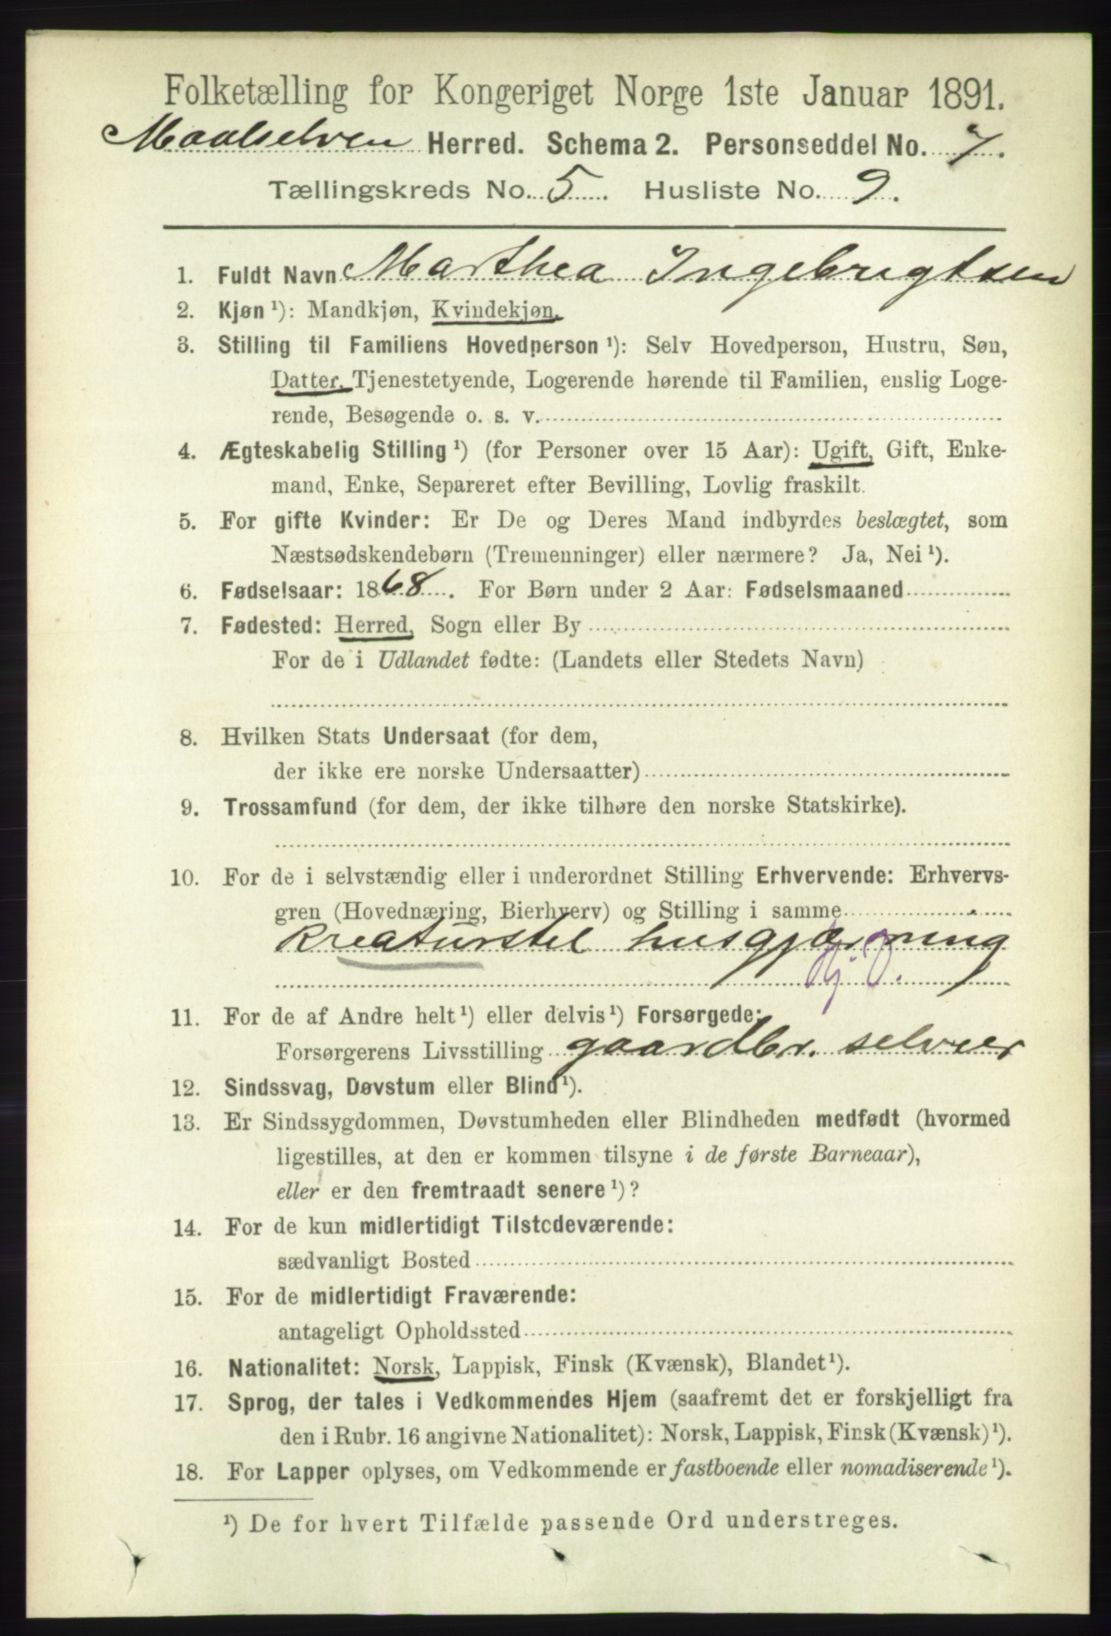 Folketælling for Kongeriget Norge 1ste Januar 1891.
Maalselven Herred. Schema 2. Personseddel No. 7.
Tællingskreds No. 5. Husliste No. 9.
1. Fuldt Navn Marthea Ingebrigtsen
2. Kjøn ¹): Mandkjøn, Kvindekjøn.
3. Stilling til Familiens Hovedperson ¹): Selv Hovedperson, Hustru, Søn,
Datter, Tjenestetyende, Logerende hørende til Familien, enslig Loge-
rende, Besøgende o. s. v.
4. Ægteskabelig Stilling ¹) (for Personer over 15 Aar): Ugift, Gift, Enke-
mand, Enke, Separeret efter Bevilling, Lovlig fraskilt.
5. For gifte Kvinder: Er De og Deres Mand indbyrdes beslægtet, som
Næstsødskendebørn (Tremenninger) eller nærmere? Ja, Nei ¹).
6. Fødselsaar: 1868. For Børn under 2 Aar: Fødselsmaaned
7. Fødested: Herred, Sogn eller By
For de i Udlandet fødte: (Landets eller Stedets Navn)
8. Hvilken Stats Undersaat (for dem,
der ikke ere norske Undersaatter)
9. Trossamfund (for dem, der ikke tilhøre den norske Statskirke).
10. For de i selvstændig eller i underordnet Stilling Erhvervende: Erhvervs-
gren (Hovednæring, Bierhverv) og Stilling i samme
kreaturstel husgjærning
Hj. D.
11. For de af Andre helt ¹) eller delvis ¹) Forsørgede:
Forsørgerens Livsstilling gaardbr. selveier
12. Sindssvag, Døvstum eller Blind ¹).
13. Er Sindssygdommen, Døvstumheden eller Blindheden medfødt (hvormed
ligestilles, at den er kommen tilsyne i de første Barneaar),
eller er den fremtraadt senere ¹)?
14. For de kun midlertidigt Tilstedeværende:
sædvanligt Bosted
15. For de midlertidigt Fraværende:
antageligt Opholdssted
16. Nationalitet: Norsk, Lappisk, Finsk (Kvænsk), Blandet ¹).
17. Sprog, der tales i Vedkommendes Hjem (saafremt det er forskjelligt fra
den i Rubr. 16 angivne Nationalitet): Norsk, Lappisk, Finsk (Kvænsk) ¹).
18. For Lapper oplyses, om Vedkommende er fastboende eller nomadiserende ¹).
¹) De for hvert Tilfælde passende Ord understreges.